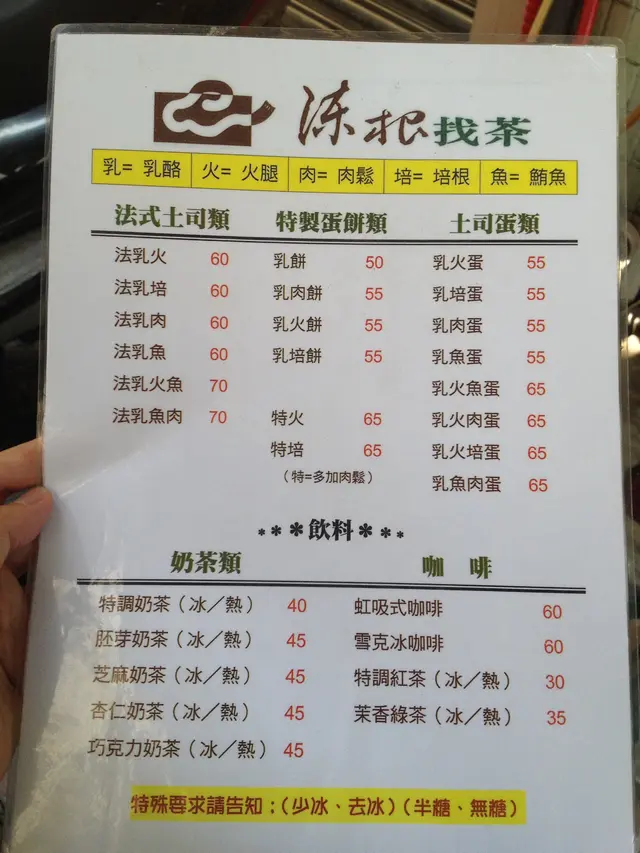 涷根找茶
乳= 乳酪 火= 火腿 肉= 肉鬆 培= 培根 魚= 鮪魚
法式土司類
法乳火 60
法乳培 60
法乳肉 60
法乳魚 60
法乳火魚 70
法乳魚肉 70
特製蛋餅類
乳餅 50
乳肉餅 55
乳火餅 55
乳培餅 55
特火 65
特培 65
(特=多加肉鬆)
土司蛋類
乳火蛋 55
乳培蛋 55
乳肉蛋 55
乳魚蛋 55
乳火魚蛋 65
乳火肉蛋 65
乳火培蛋 65
乳魚肉蛋 65
***飲料***
奶茶類
特調奶茶(冰/熱) 40
胚芽奶茶(冰/熱) 45
芝麻奶茶(冰/熱) 45
杏仁奶茶(冰/熱) 45
巧克力奶茶(冰/熱) 45
咖 啡
虹吸式咖啡 60
雪克冰咖啡 60
特調紅茶(冰/熱) 30
茉香綠茶(冰/熱) 35
特殊要求請告知:(少冰、去冰)(半糖、無糖)